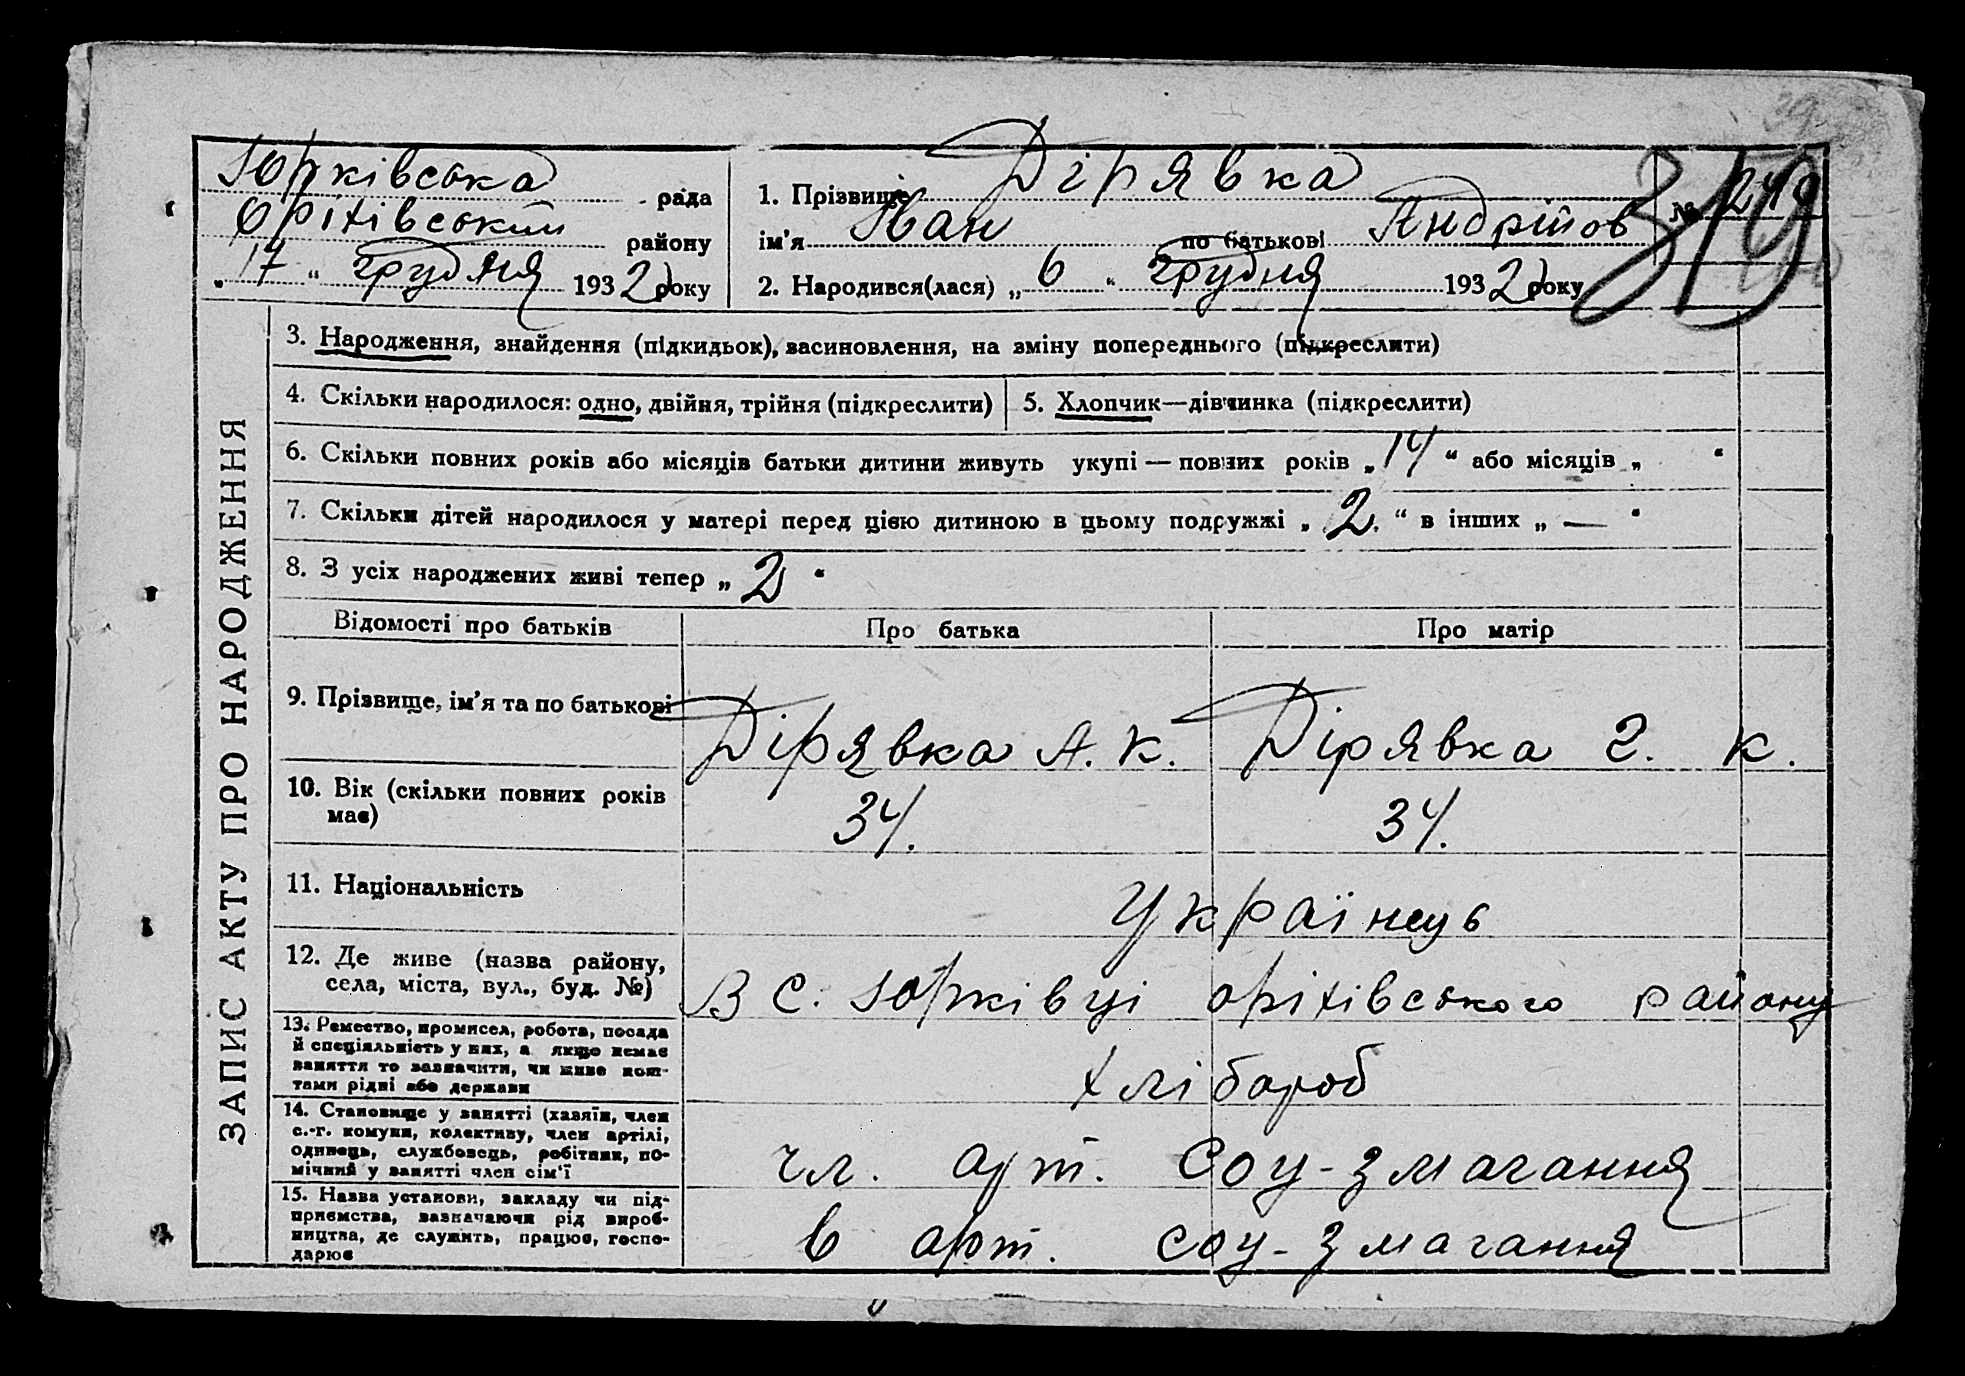 Юрківська рада
Оріхівський району
„ 17 “ грудня 1932 року
1. Прізвище Дірявка
ім'я Іван по батькові Андрійов
2. Народився(лася) „ 6 “ грудня 1932 року
№ 249
319
ЗАПИС АКТУ ПРО НАРОДЖЕННЯ
3. Народження, знайдення (підкидьок), васиновлення, на зміну попереднього (підкреслити)
4. Скільки народилося: одно, двійня, трійня (підкреслити)
5. Хлопчик—дівчинка (підкреслити)
6. Скільки повних років або місяців батьки дитини живуть укупі — повних років „ 14 “ або місяців „ “
7. Скільки дітей народилося у матері перед цією дитиною в цьому подружжі „ 2. “ в інших „ — “
8. З усіх народжених живі тепер „ 2 “
Відомості про батьків Про батька Про матір
9. Прізвище, ім'я та по батькові Дірявка А. К. Дірявка Г. К.
10. Вік (скільки повних років
має) 34. 34.
11. Національність Українець
12. Де живе (назва району,
села, міста, вул., буд. №) В с. Юрківці Оріхівського району
13. Ремество, промисел, робота, посада
й спеціяльність у них, а якщо немає
заняття то зазначити, чи живе кош-
тами рідні або держави
хлібороб
14. Становище у занятті (хазяїн, член
с.-г. комуни, колективу, член артілі,
одинець, службовець, робітник, по-
мічний у занятті член сім'ї
чл. арт. Соц-змагання
15. Назва установи, закладу чи під-
приємства, зазначаючи рід вироб-
ництва, де служить, працює, госпо-
дарює
в арт. соц-змагання